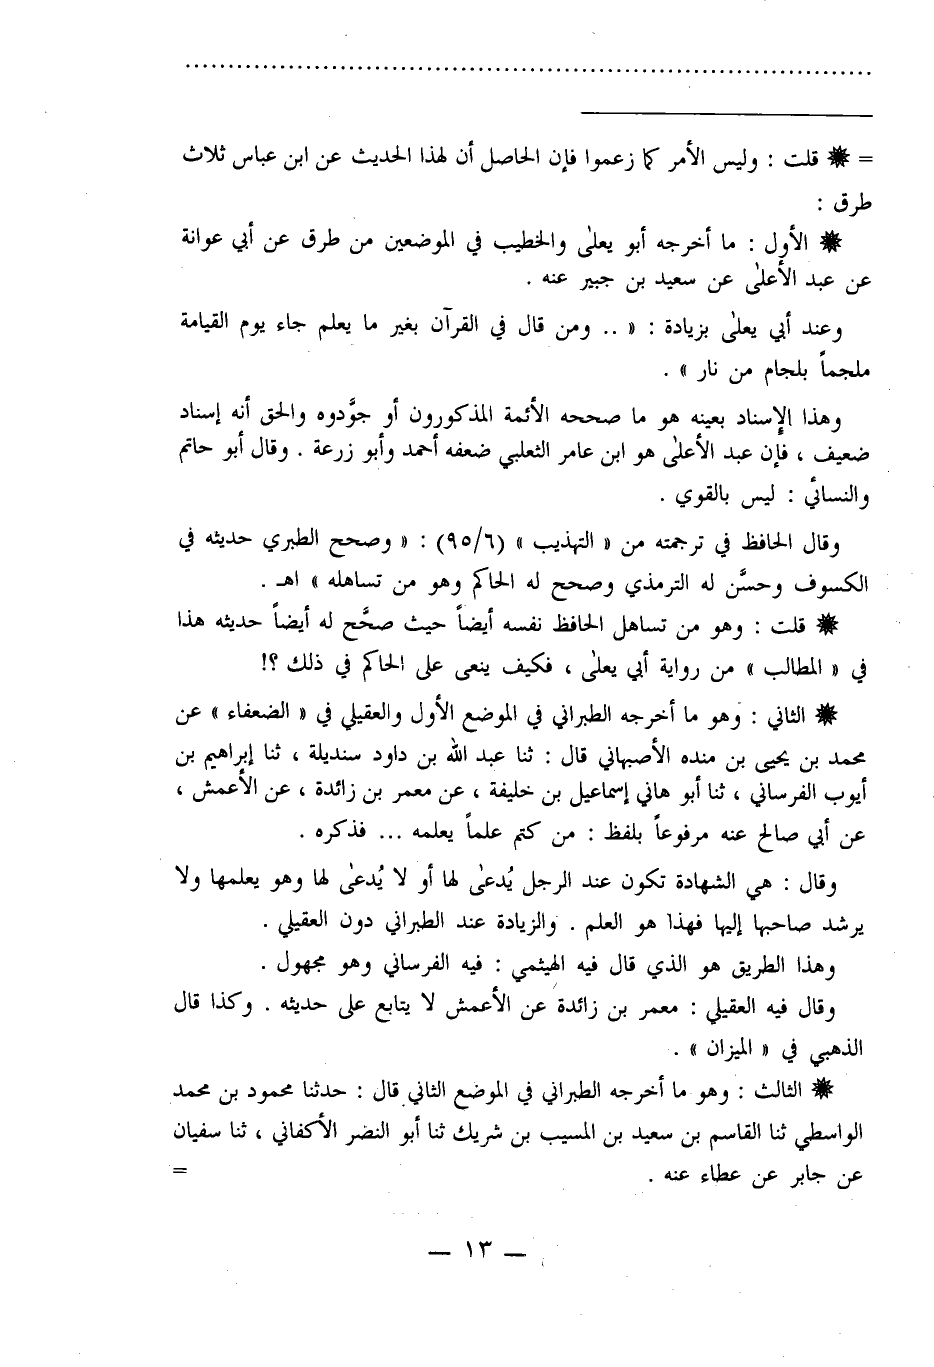 = ✵ قلت : وليس الأمر كما زعموا فإن الحاصل أن لهذا الحديث عن ابن عباس ثلاث
طرق :
✵ الأول : ما أخرجه أبو يعلى والخطيب في الموضعين من طرق عن أبي عوانة
عن عبد الأعلى عن سعيد بن جبير عنه .
وعند أبي يعلى بزيادة : « .. ومن قال في القرآن بغير ما يعلم جاء يوم القيامة
ملجماً بلجام من نار » .
وهذا الإسناد بعينه هو ما صححه الأئمة المذكورون أو جوَّدوه والحق أنه إسناد
ضعيف ، فإن عبد الأعلى هو ابن عامر الثعلبي ضعفه أحمد وأبو زرعة . وقال أبو حاتم
والنسائي : ليس بالقوي .
وقال الحافظ في ترجمته من « التهذيب » (٩٥/٦) : « وصحح الطبري حديثه في
الكسوف وحسَّن له الترمذي وصحح له الحاكم وهو من تساهله » اهـ .
✵ قلت : وهو من تساهل الحافظ نفسه أيضاً حيث صحَّح له أيضاً حديثه هذا
في « المطالب » من رواية أبي يعلى ، فكيف ينعى على الحاكم في ذلك ؟!
✵ الثاني : وهو ما أخرجه الطبراني في الموضع الأول والعقيلي في « الضعفاء » عن
محمد بن يحيى بن منده الأصبهاني قال : ثنا عبد الله بن داود سنديلة ، ثنا إبراهيم بن
أيوب الفرساني ، ثنا أبو هاني إسماعيل بن خليفة ، عن معمر بن زائدة ، عن الأعمش ،
عن أبي صالح عنه مرفوعاً بلفظ : من كتم علماً يعلمه ... فذكره .
وقال : هي الشهادة تكون عند الرجل يُدعى لها أو لا يُدعى لها وهو يعلمها ولا
يرشد صاحبها إليها فهذا هو العلم . والزيادة عند الطبراني دون العقيلي .
وهذا الطريق هو الذي قال فيه الهيثمي : فيه الفرساني وهو مجهول .
وقال فيه العقيلي : معمر بن زائدة عن الأعمش لا يتابع على حديثه . وكذا قال
الذهبي في « الميزان » .
✵ الثالث : وهو ما أخرجه الطبراني في الموضع الثاني قال : حدثنا محمود بن محمد
الواسطي ثنا القاسم بن سعيد بن المسيب بن شريك ثنا أبو النضر الأكفاني ، ثنا سفيان
عن جابر عن عطاء عنه . =
— ١٣ —